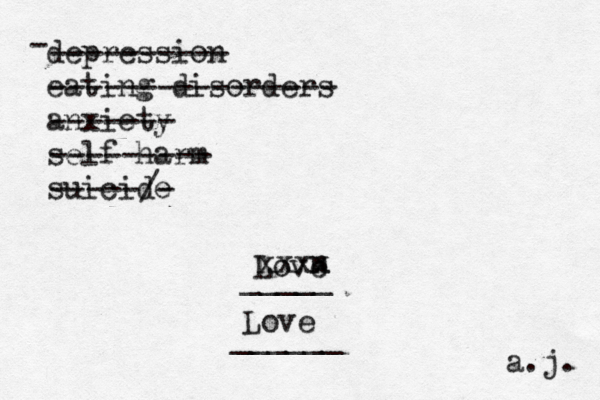 depression
eating disorders
anxiety
self harm
suicide
Love
Love
a.j.